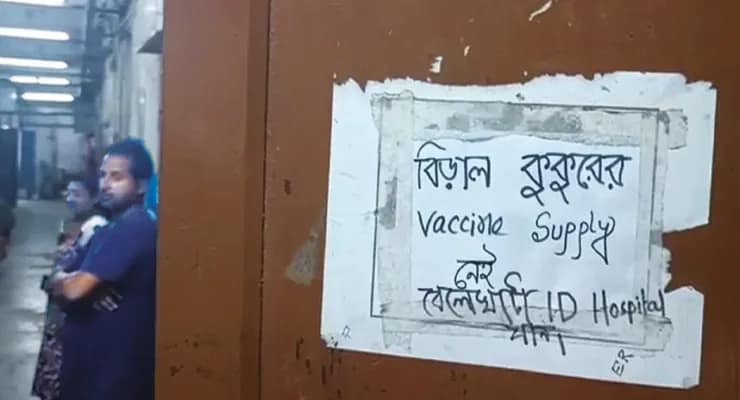 বিড়াল কুকুরের
Vaccine Supply
নেই
বেলেঘাটা ID Hospital
যান
ER